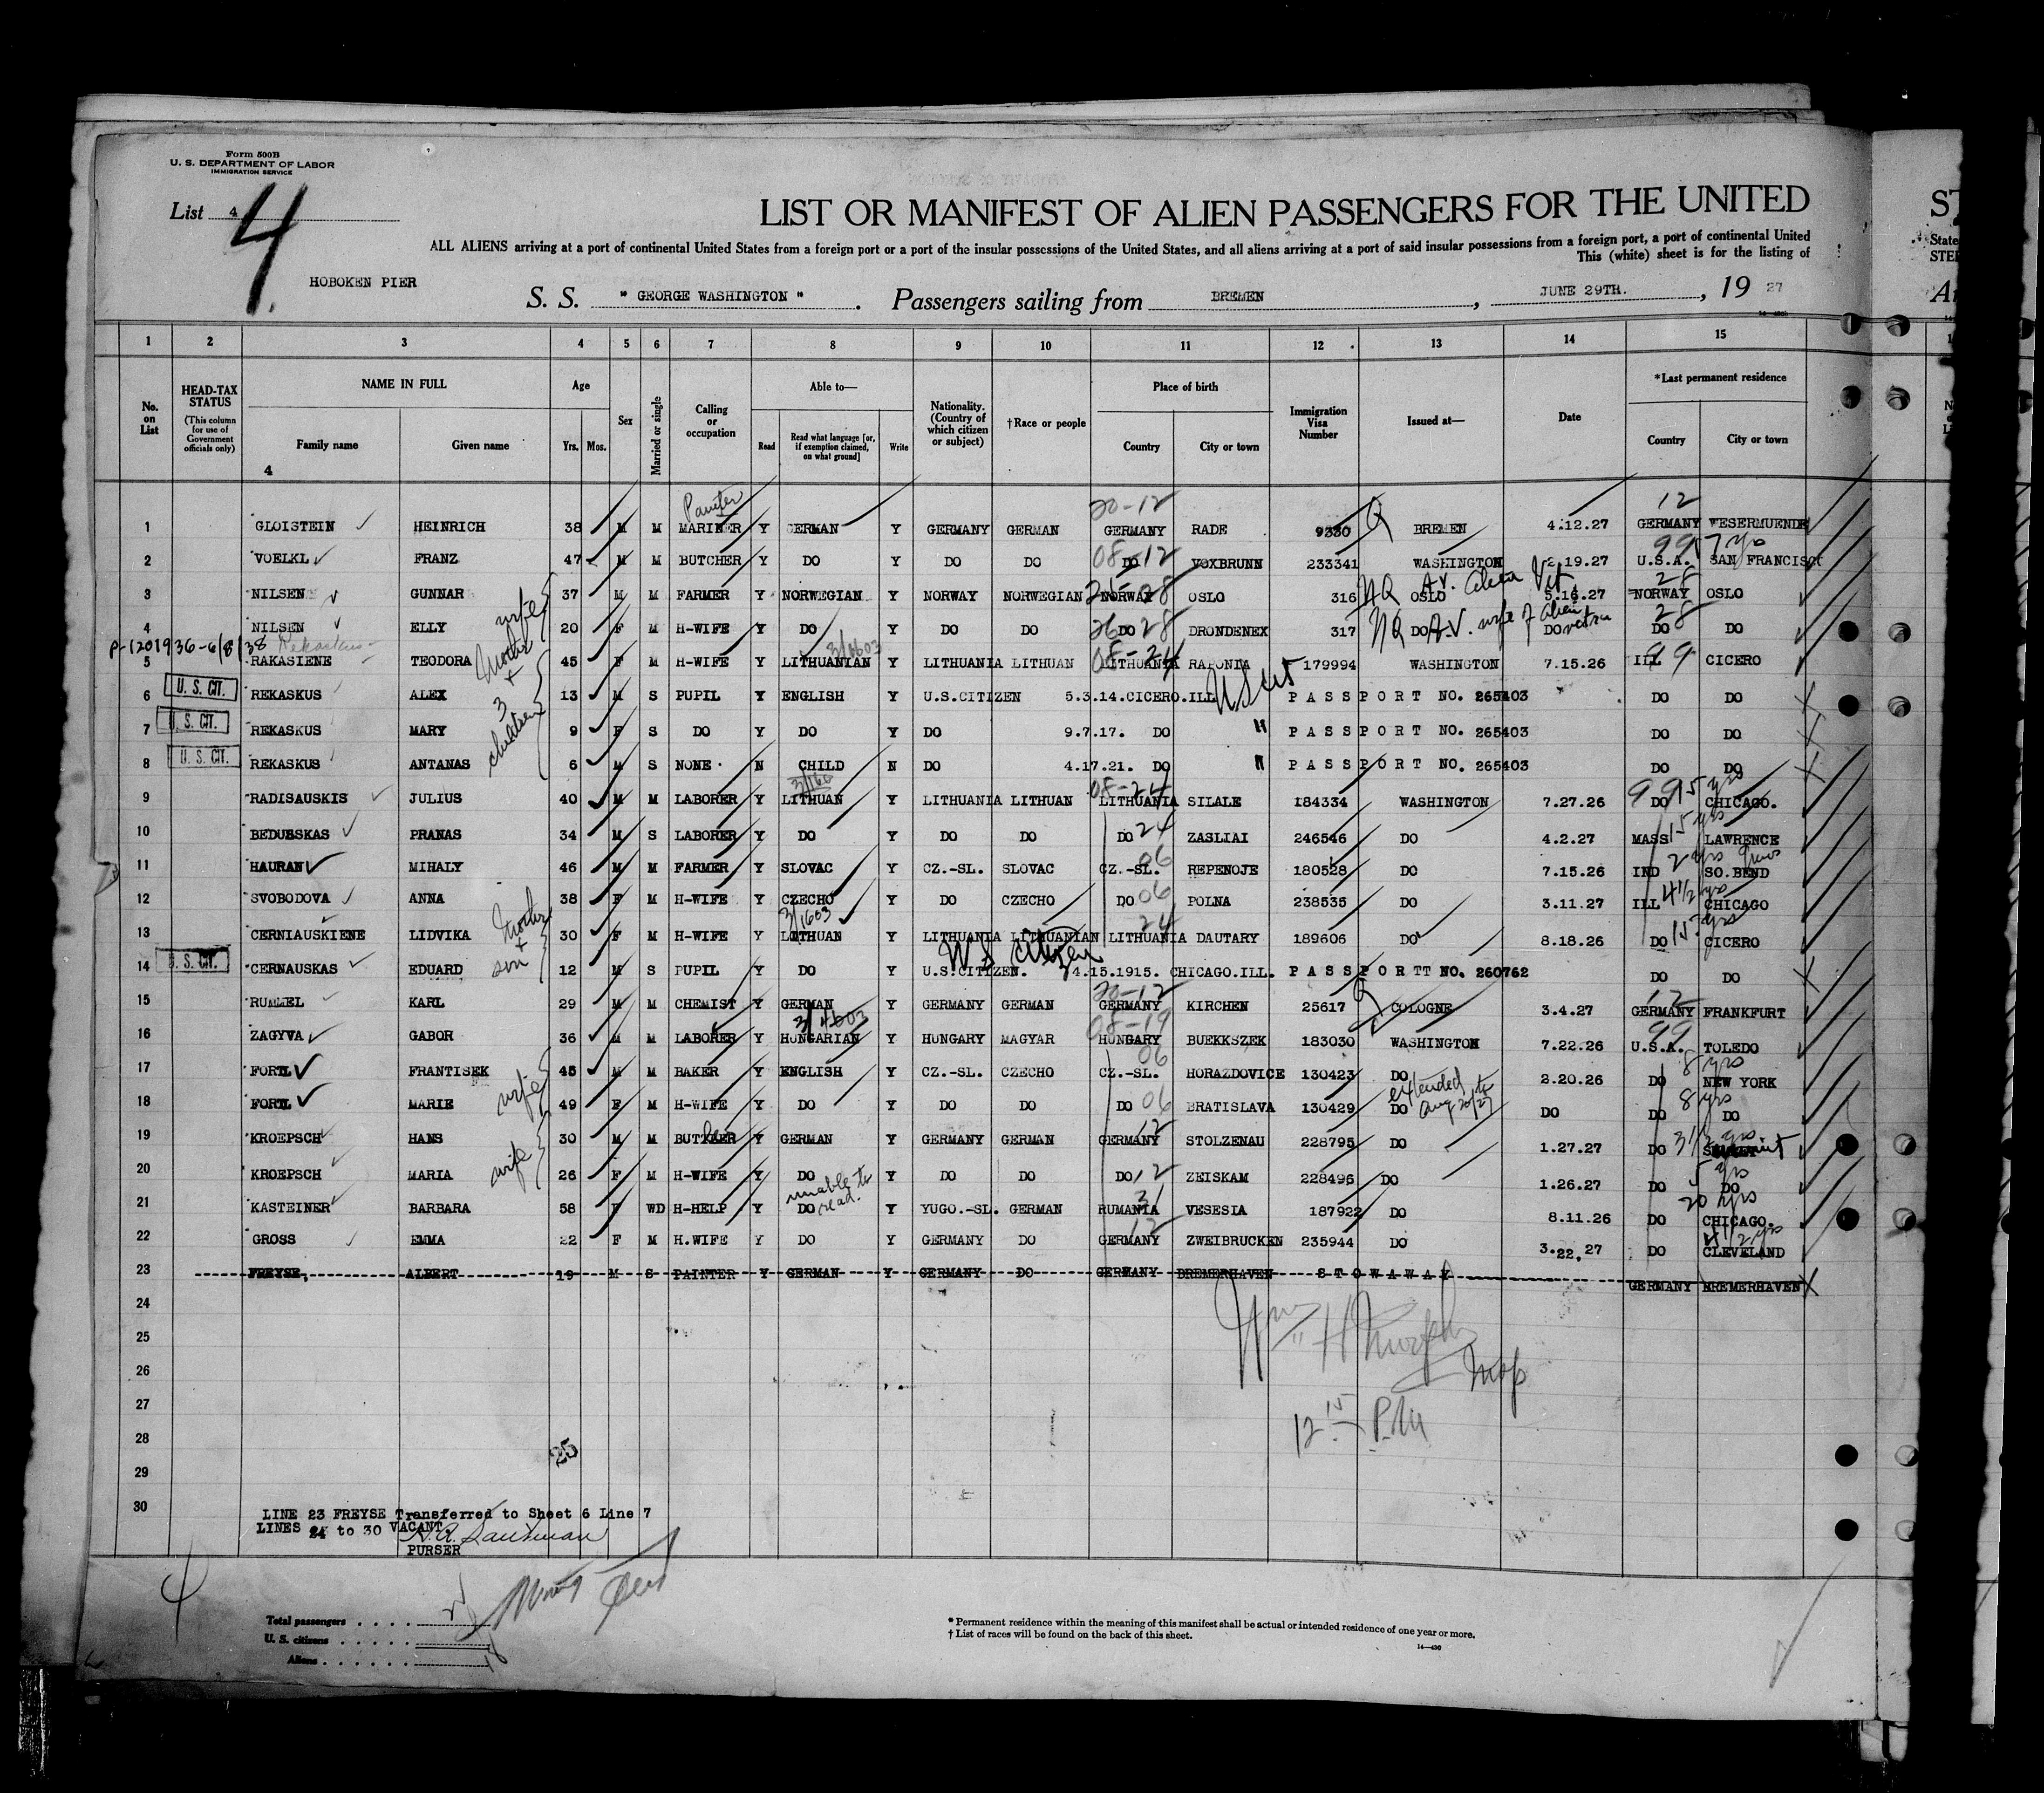 Form 500B
U. S. DEPARTMENT OF LABOR
IMMIGRATION SERVICE
List 4
4
LIST OR MANIFEST OF ALIEN PASSENGERS FOR THE UNITED
ST
ALL ALIENS arriving at a port of continental United States from a foreign port or a port of the insular possessions of the United States, and all aliens arriving at a port of said insular possessions from a foreign port, a port of continental United
State
This (white) sheet is for the listing of
HOBOKEN PIER
S. S. " GEORGE WASHINGTON " . Passengers sailing from BREMEN , JUNE 29TH. , 19 27
1 2 3 4 5 6 7 8 9 10 11 12 13 14 15
No. on List
HEAD-TAX STATUS (This column for use of Government officials only)
NAME IN FULL Family name Given name
Age Yrs. Mos.
Sex
Married or single
Calling or occupation
Able to— Read Read what language [or, if exemption claimed, on what ground] Write
Nationality. (Country of which citizen or subject)
†Race or people
Place of birth Country City or town
Immigration Visa Number
Issued at—
Date
*Last permanent residence Country City or town
4
Painter 20-12 12
1 GLOISTEIN HEINRICH 38 M M MARINER Y GERMAN Y GERMANY GERMAN GERMANY RADE 9330 BREMEN 4.12.27 GERMANY WESERMUENDE
08-12 99 7 yrs
2 VOELKL FRANZ 47 M M BUTCHER Y DO Y DO DO DO VOXBRUNN 233341 WASHINGTON 2.19.27 U.S.A. SAN FRANCISCO
28 NQ A.V. alien Vet 28
3 NILSEN GUNNAR 37 M M FARMER Y NORWEGIAN Y NORWAY NORWEGIAN NORWAY OSLO 316 OSLO 5.16.27 NORWAY OSLO
wife 26 28 NQ A.V. wife of alien 28
4 NILSEN ELLY 20 F M H-WIFE Y DO Y DO DO DO DRONDENEX 317 DO DO DO DO
P-1201936-6/8/38
Mother + 3 children 08-24 99
5 RAKASIENE TEODORA 45 F M H-WIFE Y LITHUANIAN Y LITHUANIA LITHUAN LITHUANIA RADONIA 179994 WASHINGTON 7.15.26 ILL CICERO
U. S. CIT.
6 REKASKUS ALEX 13 M S PUPIL Y ENGLISH Y U.S.CITIZEN 5.3.14.CICERO.ILL US Cit PASSPORT NO. 265403 DO DO
U. S. CIT.
7 REKASKUS MARY 9 F S DO Y DO Y DO 9.7.17. DO " PASSPORT NO. 265403 DO DO
U. S. CIT.
8 REKASKUS ANTANAS 6 M S NONE N CHILD N DO 4.17.21. DO " PASSPORT NO. 265403 DO DO
08-24 99 15 yrs
9 RADISAUSKIS JULIUS 40 M M LABORER Y LITHUAN Y LITHUANIA LITHUAN LITHUANIA SILALE 184334 WASHINGTON 7.27.26 DO CHICAGO.
24 15 yrs
10 BEDUBSKAS PRANAS 34 M S LABORER Y DO Y DO DO DO ZASLIAI 246546 DO 4.2.27 MASS LAWRENCE
06 2 yrs
11 HAURAN MIHALY 46 M M FARMER Y SLOVAC Y CZ.-SL. SLOVAC CZ.-SL. REPENOJE 180528 DO 7.15.26 IND SO.BEND
06 4 1/2 yrs
12 SVOBODOVA ANNA 38 F M H-WIFE Y CZECHO Y DO CZECHO DO POLNA 238535 DO 3.11.27 ILL CHICAGO
Mother + son 3/1603 24 15 yrs
13 CERNIAUSKIENE LIDVIKA 30 F M H-WIFE Y LITHUAN Y LITHUANIA LITHUANIAN LITHUANIA DAUTARY 189606 DO 8.18.26 DO CICERO
U. S. CIT. US citizen
14 CERNAUSKAS EDUARD 12 M S PUPIL Y DO Y U.S.CITIZEN. 4.15.1915. CHICAGO.ILL. PASSPORTT NO. 260762 DO DO
20-12 12
15 RUMMEL KARL 29 M M CHEMIST Y GERMAN Y GERMANY GERMAN GERMANY KIRCHEN 25617 COLOGNE 3.4.27 GERMANY FRANKFURT
3/4603 08-19 99
16 ZAGYVA GABOR 36 M M LABORER Y HUNGARIAN Y HUNGARY MAGYAR HUNGARY BUEKKSZEK 183030 WASHINGTON 7.22.26 U.S.A. TOLEDO
06 8 yrs
17 FORTL FRANTISEK 45 M M BAKER Y ENGLISH Y CZ.-SL. CZECHO CZ.-SL. HORAZDOVICE 130423 DO 2.20.26 DO NEW YORK
wife 06 extended to Aug 20/27 8 yrs
18 FORTL MARIE 49 F M H-WIFE Y DO Y DO DO DO BRATISLAVA 130429 DO DO DO DO
12 3 1/2 yrs
19 KROEPSCH HANS 30 M M BUTLER Y GERMAN Y GERMANY GERMAN GERMANY STOLZENAU 228795 DO 1.27.27 DO
wife 12 5 yrs
20 KROEPSCH MARIA 26 F M H-WIFE Y DO Y DO DO DO ZEISKAM 228496 DO 1.26.27 DO DO
unable to read. 31 20 yrs
21 KASTEINER BARBARA 58 F WD H-HELP Y DO Y YUGO.-SL. GERMAN RUMANIA VESESIA 187922 DO 8.11.26 DO CHICAGO.
12
22 GROSS EMMA 22 F M H.WIFE Y DO Y GERMANY DO GERMANY ZWEIBRUCKEN 235944 DO 3.22.27 DO CLEVELAND
23 FREYSE, ALBERT 19 M S PAINTER Y GERMAN Y GERMANY DO GERMANY BREMERHAVEN STOWAWAY GERMANY BREMERHAVEN
24
25
26
27
12 15 P.M
28
25
29
30
LINE 23 FREYSE Transferred to Sheet 6 Line 7
LINES 24 to 30 VACANT.
PURSER
Total passengers
U. S. citizens
Aliens
* Permanent residence within the meaning of this manifest shall be actual or intended residence of one year or more.
† List of races will be found on the back of this sheet.
14—430